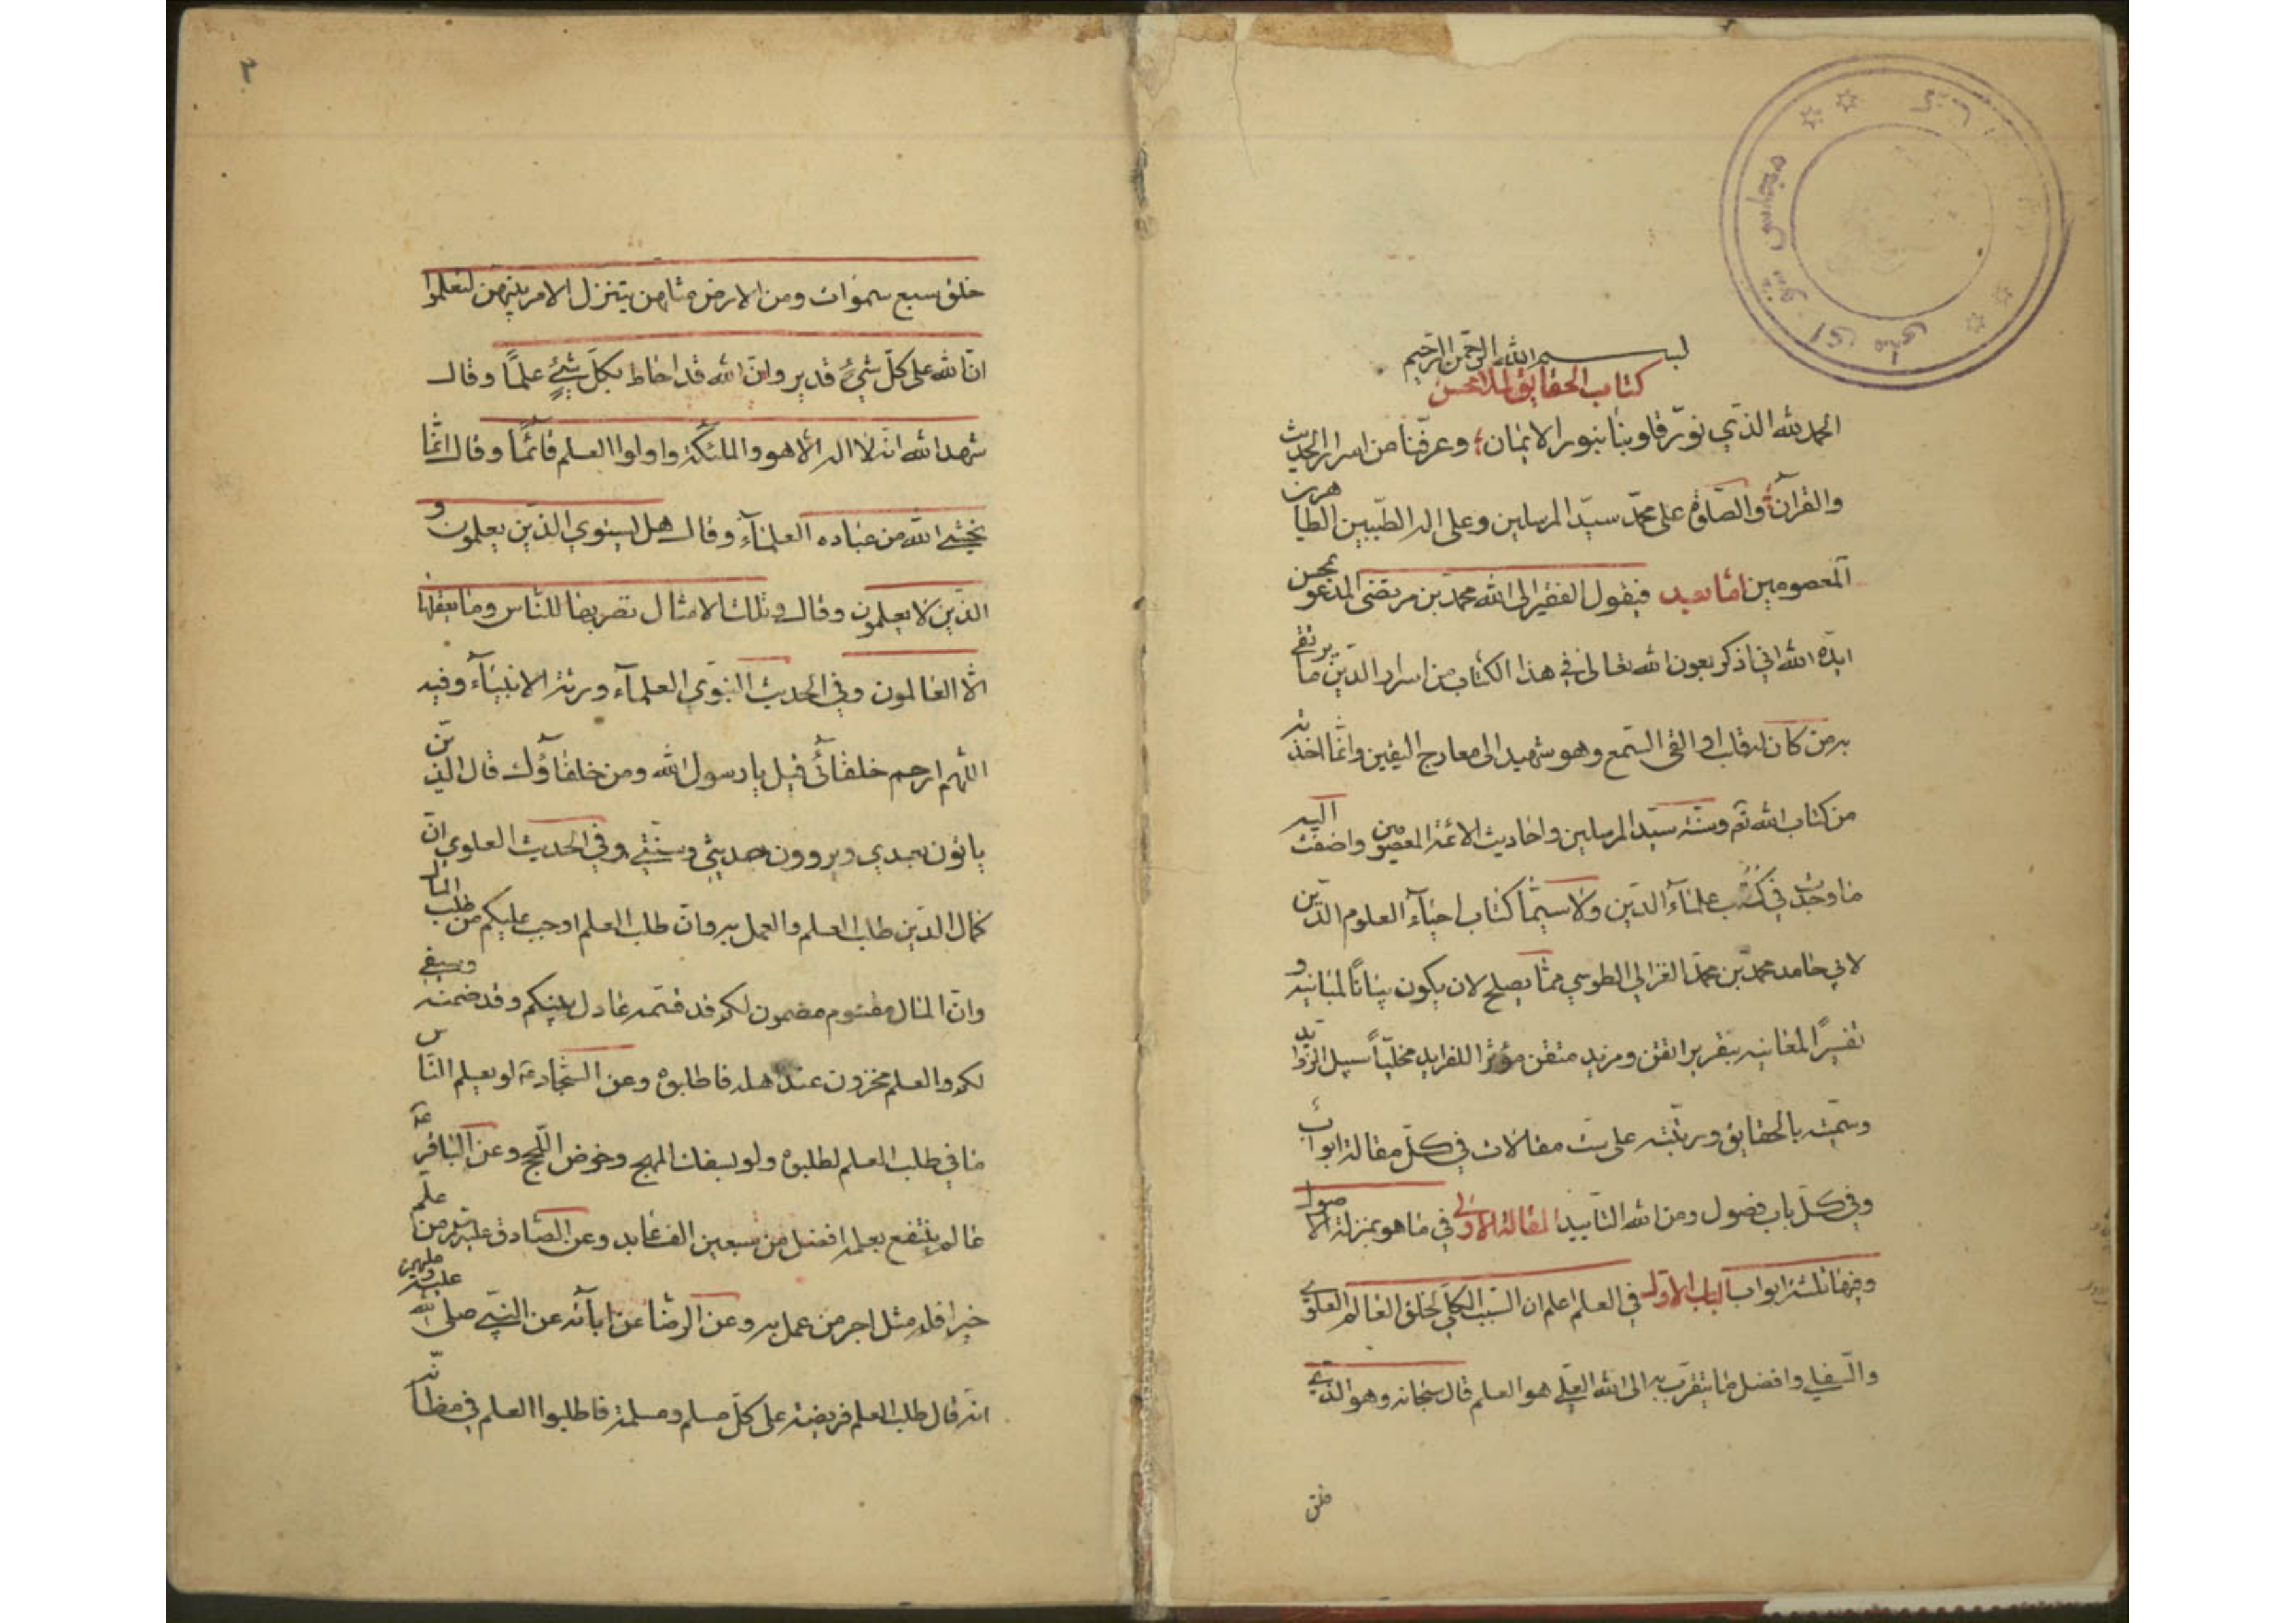 بسم الله الرحمن الرحيم
كتاب الحقايق لملا محسن
الحمد لله الذي نوّر قلوبنا بنور الايمان وعرفنا من اسرار الحديث
والقرآن والصلوة على محمد سيد المرسلين وعلى اله الطيبين الطاهرين
المعصومين اما بعد فيقول الفقير الى الله محمد بن مرتضى المدعو بمحسن
ايده الله اني اذكر بعون الله تعالى في هذا الكتاب من اسرار الدين ما يرتقي
به من كان له قلب او القى السمع وهو شهيد الى معارج اليقين وانما اخذته
من كتاب الله تع وسنة سيد المرسلين واحاديث الائمة المعصومين واضفت اليه
ما وجدت في كتب علماء الدين ولا سيما كتاب احياء العلوم الدين
لابي حامد محمد بن محمد الغزالي الطوسي مما يصلح لان يكون بيانا لمبانيه و
تفسيرا لمعانيه بتقرير اتقن ومزيد متقن مؤثرا للفرايد مخليا سبيل الزوايد
وسميته بالحقايق ورتبته على ست مقالات في كل مقالة ابواب
وفي كل باب فصول ومن الله التاييد المقالة الاولى في ما هو بمنزلة الاصول
وفيها ثلثة ابواب الباب الاول في العلم اعلم ان السبب الكلي لخلق العالم العلوي
والسفلي وافضل ما يتقرب به الى الله العلي هو العلم قال سبحانه وهو الذي
خلق
٢
خلق سبع سموات ومن الارض مثلهن يتنزل الامر بينهن لتعلموا
ان الله على كل شيء قدير وان الله قد احاط بكل شيء علما وقال
شهد الله انه لا اله الا هو والملئكة واولوا العلم قائما وقال انما
يخشى الله من عباده العلماء وقال هل يستوي الذين يعلمون و
الذين لا يعلمون وقال وتلك الامثال نضربها للناس وما يعقلها
الا العالمون وفي الحديث النبوي العلماء ورثة الانبياء وفيه
اللهم ارحم خلفائي قيل يا رسول الله ومن خلفاؤك قال الذين
ياتون بعدي ويروون حديثي وسنتي وفي الحديث العلوي ان
كمال الدين طلب العلم والعمل به وان طلب العلم اوجب عليكم من طلب المال
وان المال مقسوم مضمون لكم قد قسمه عادل بينكم وقد ضمنه وسيفي
لكم والعلم مخزون عند اهله فاطلبوه وعن السجاد ع لو يعلم الناس
ما في طلب العلم لطلبوه ولو بسفك المهج وخوض اللجج وعن الباقر ع
عالم ينتفع بعلمه افضل من سبعين الف عابد وعن الصادق عليه من علم
خيرا فله مثل اجر من عمل به وعن الرضا عن ابآئه عن النبي صلى الله عليه وعليهم
انه قال طلب العلم فريضة على كل مسلم ومسلمة فاطلبوا العلم في مظانه